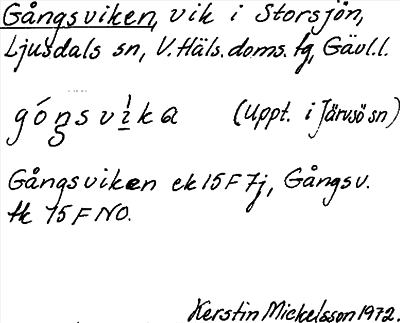 Gångsviken, vik i Storsjön,
Ljusdals sn, V. Häls. doms. tg, Gävl.l.
góŋsvi̲ka (Uppt. i Järvsö sn)
Gångsviken ek 15F7j, Gångsv.
tk 15F NO.
Kerstin Mickelsson 1972.